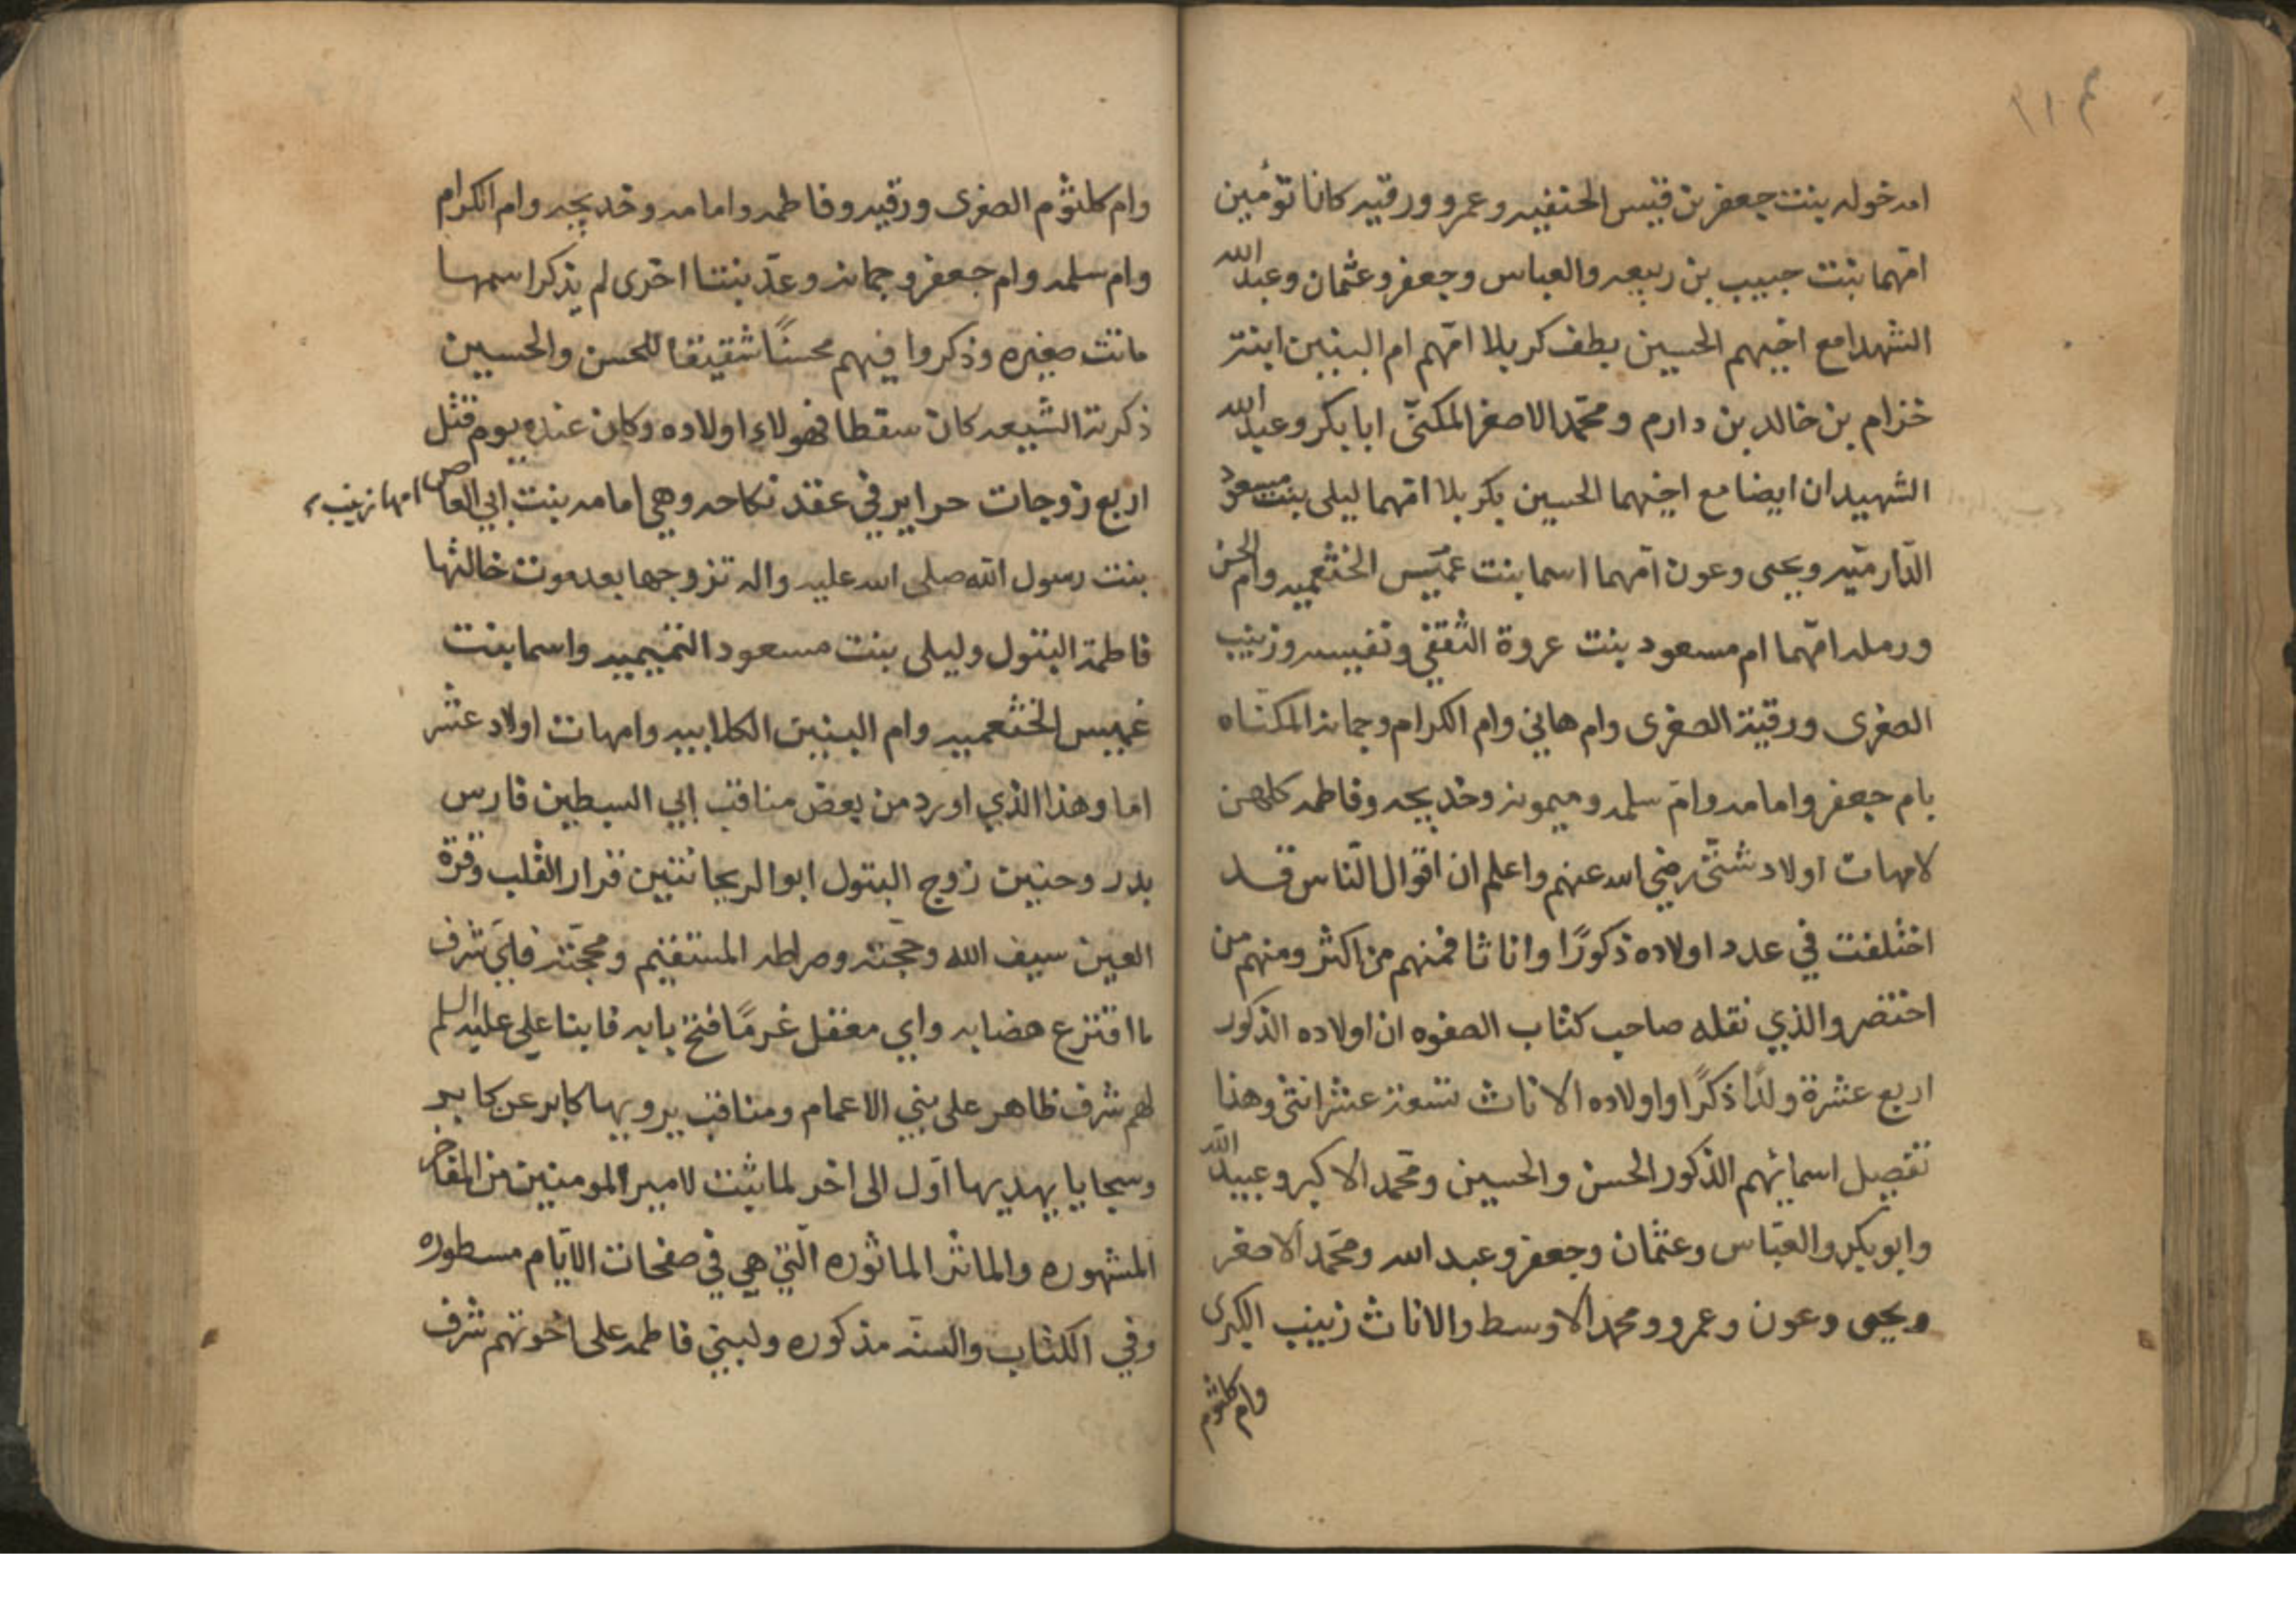 امه خوله بنت جعفر بن قيس الحنفيه وعمرو ورقيه كانا توٴمين
امّهما بنت حبيب بن ربيعه والعباس وجعفر وعثمان وعبدالله
الشهدا مع اخيهم الحسين بطف كربلا امّهم ام البنين ابنة
خزام بن خالد بن دارم ومحمّد الاصغر المكنّى ابا بكر وعبيدالله
الشهيدان ايضا مع اخيهما الحسين بكربلا امّهما ليلى بنت مسعود
الدّارميّه ويحيى وعون امّهما اسما بنت عميس الخثعميه وام الحسن
ورمله امّهما ام مسعود بنت عروة الثقفي ونفيسه وزينب
الصغرى ورقية الصغرى وام هاني وام الكرام وجمانه المكنّاه
بام جعفر وامامه وام سلمه وميمونه وخديجه وفاطمه كلهن
لامهات اولاد شتّى رضي الله عنهم واعلم ان اقوال النّاس قد
اختلفت في عدد اولاده ذكورًا واناثا فمنهم من اكثر ومنهم من
اختصر والذي نقله صاحب كتاب الصفوه ان اولاده الذكور
اربع عشرة ولدًا ذكرًا واولاده الاناث تسعة عشر انثى وهذا
تفصيل اسمائهم الذكور الحسن والحسين ومحّمد الاكبر وعبيدالله
وابو بكر والعبّاس وعثمان وجعفر وعبد الله ومحمّد الاصغر
ويحيى وعون وعمرو ومحمد الاوسط والاناث زينب الكبرى
وام كلثوم
وام كلثوم الصغرى ورقيه وفاطمه وامامه وخديجه وام الكرام
وام سلمه وام جعفر وجمانه وعدّ بنتا اخرى لم يذكر اسمها
ماتت صغيره وذكروا فيهم محسنًا شقيقا للحسن والحسين
ذكرته الشيعه كان سقطا فهولاء اولاده وكان عنده يوم قتل
اربع زوجات حراير في عقد نكاحه وهي امامه بنت ابي العاص امها زينب
بنت رسول الله صلى الله عليه واله تزوجها بعد موت خالتها
فاطمة البتول وليلى بنت مسعود التميميه واسما بنت
عميس الخثعميه وام البنين الكلابيه وامهات اولاد عشر
اما وهذا الذي اورد من بعض مناقب ابي السبطين فارس
بدر وحنين زوج البتول ابو الريحانتين قرار القلب وقرة
العين سيف الله وحجّته وصراطه المستقيم ومحجّته فايّ شرف
ما اقترع هضابه واي معقل غرمًا فتح بابه فابنا علي عليه السلم
لهم شرف ظاهر على بني الاعمام ومناقب يرويها كابر عن كابر
وسجايا يهديها اوّل الى اخر لما يثبت لامير المومنين من المفاخر
المشهوره والماثر الماثوره الّتي هي في صفحات الايّام مسطوره
وفي الكتاب والسنه مذكوره ولبني فاطمه على اخوتهم شرف